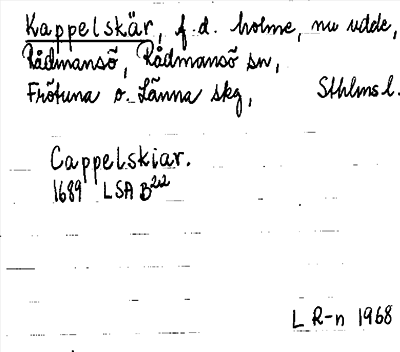 Kappelskär, f.d. holme, nu udde,
Rådmansö, Rådmansö sn,
Frötuna o. Länna skg, Sthlms l.
Cappelskiar.
1689 LSA B2:2
L R-n 1968